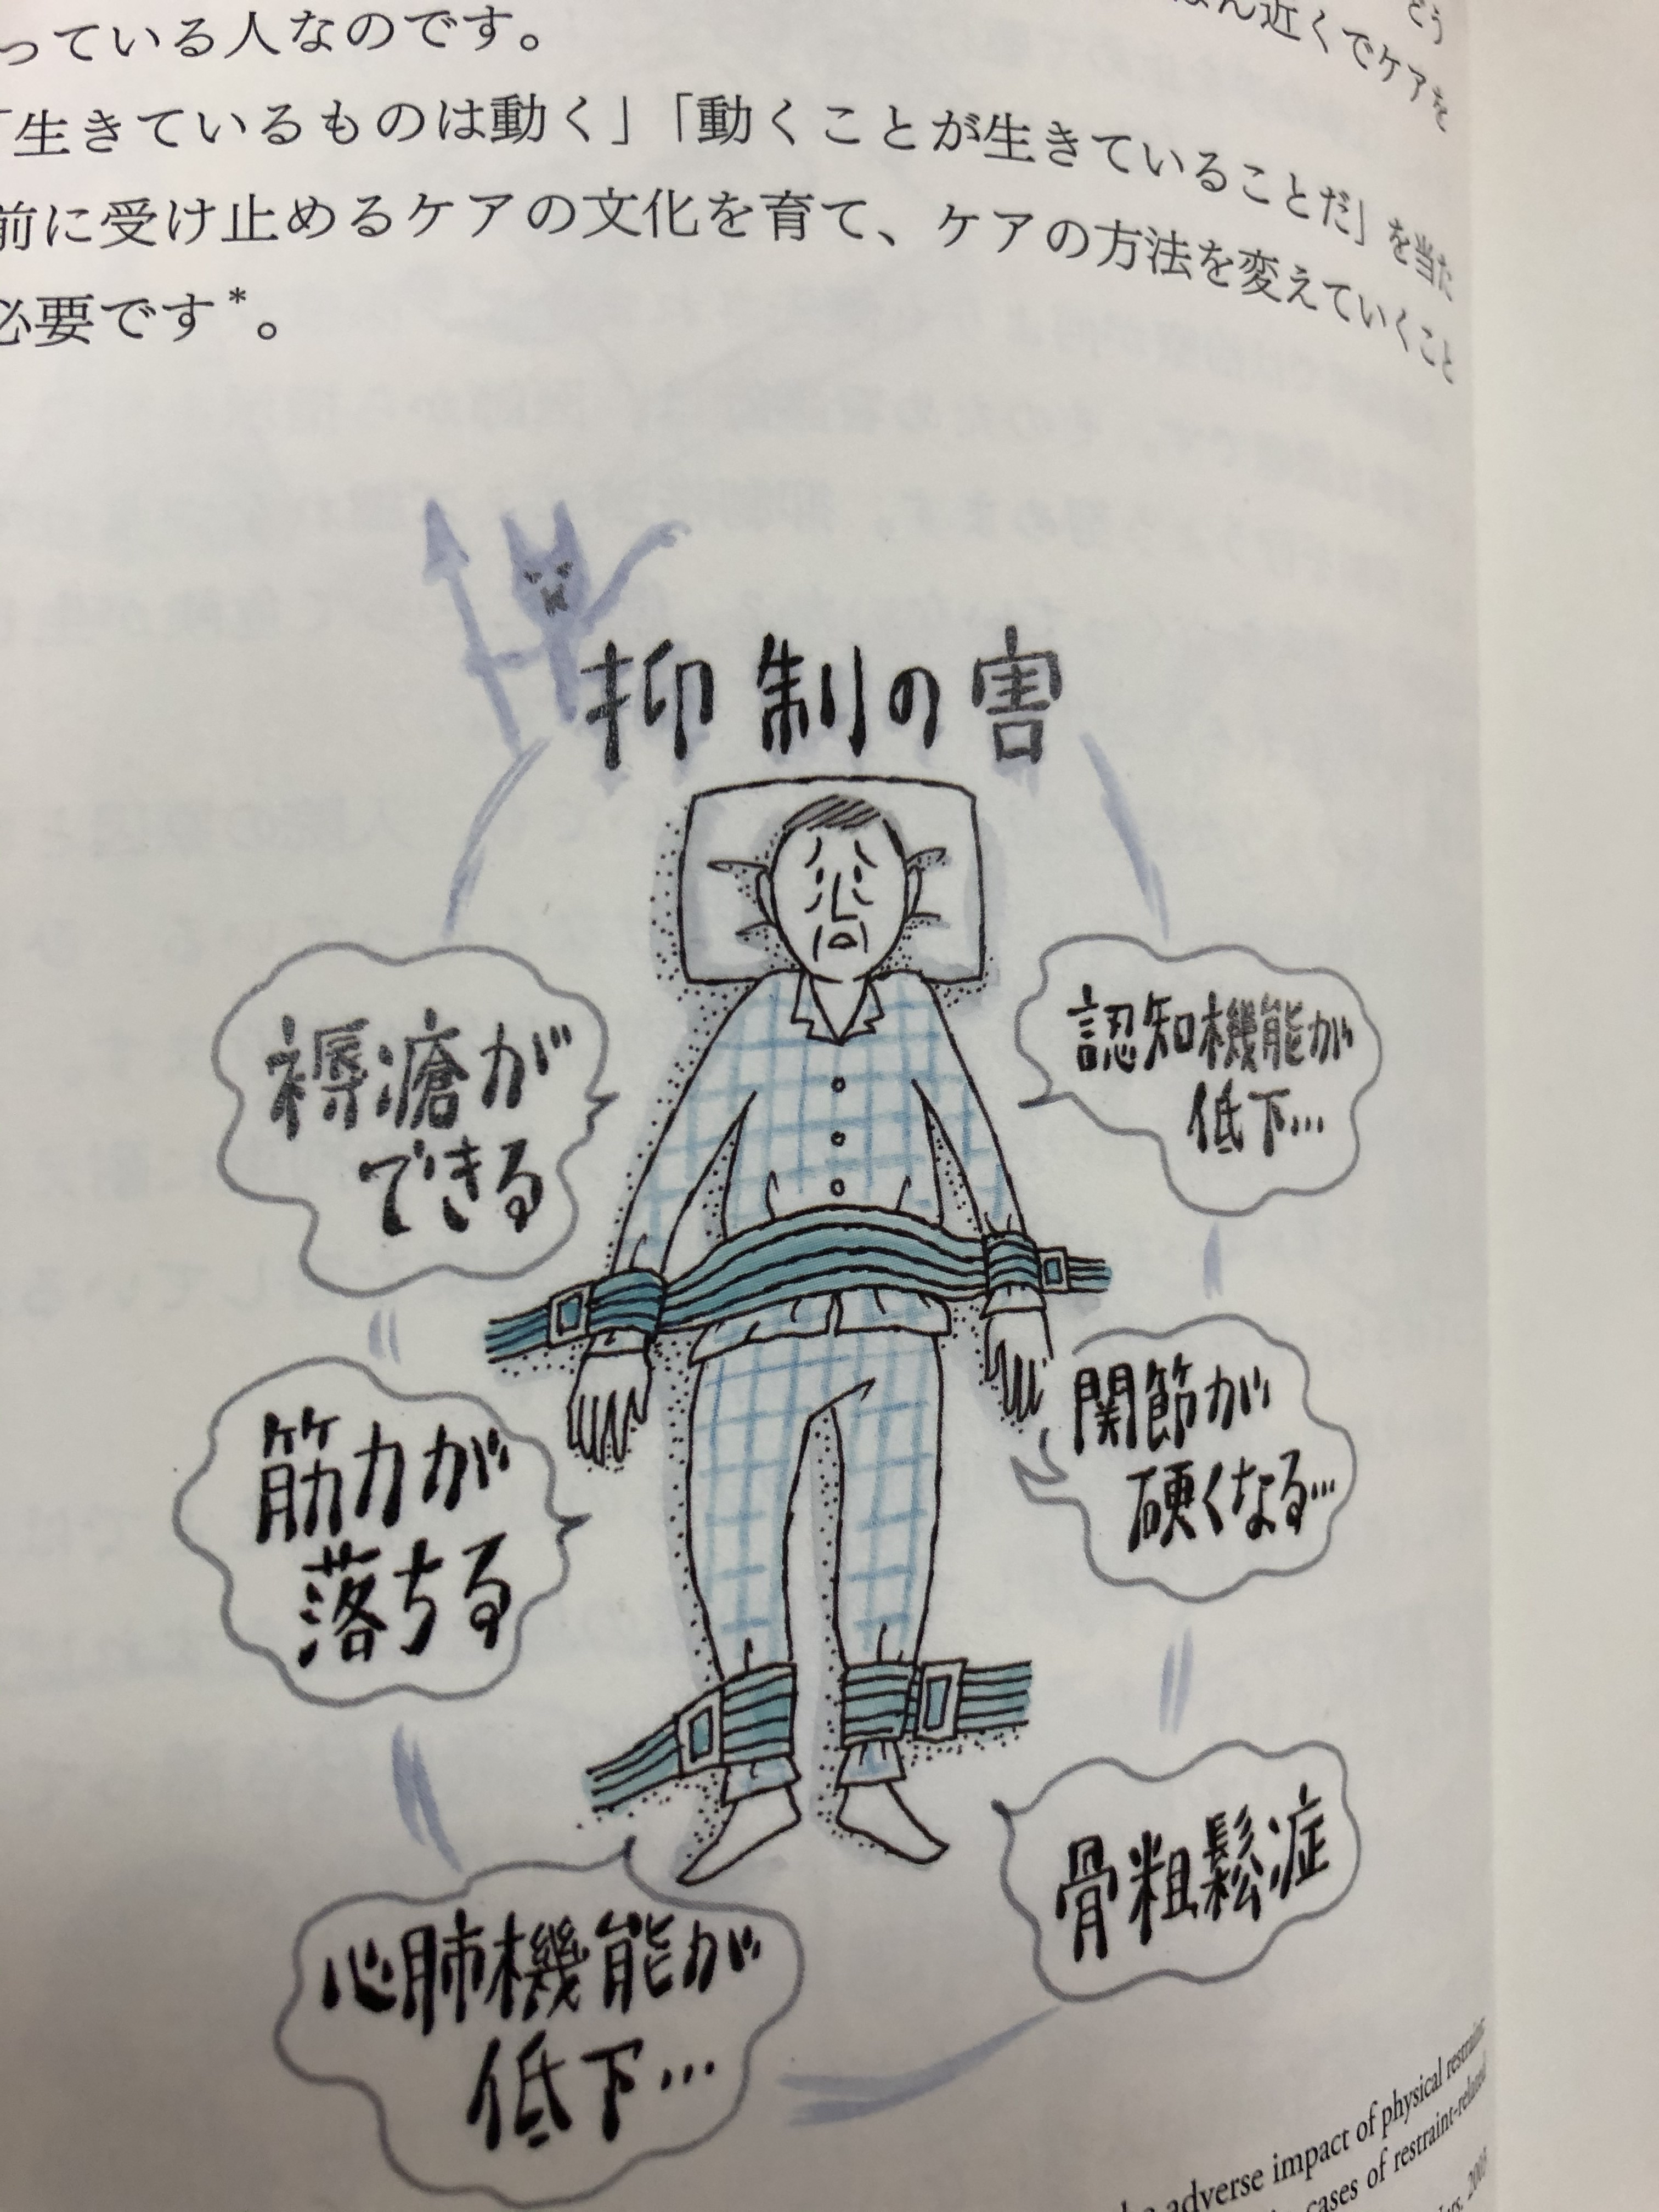 っている人なのです。
ん近くでケアを
「生きているものは動く」「動くことが生きていることだ」を当た
前に受け止めるケアの文化を育て、ケアの方法を変えていくこと
必要です*。
抑制の害
褥瘡が
できる
認知機能が
低下…
筋力が
落ちる
関節が
硬くなる…
心肺機能が
低下…
骨粗鬆症
adverse impact of physical restraint
cases of restraint-related